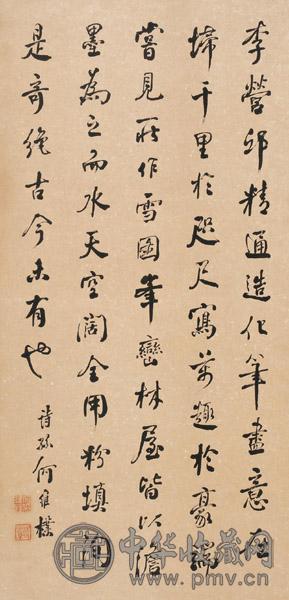 李營邱精通造化筆盡意在
掃千里於咫尺寫萬趣於豪端
嘗見所作雪圖峯巒林屋皆以澹
墨為之而水天空闊全用粉填
是奇絕古今未有也
詩孫何維樸
中华收藏网
www.pmv.cn